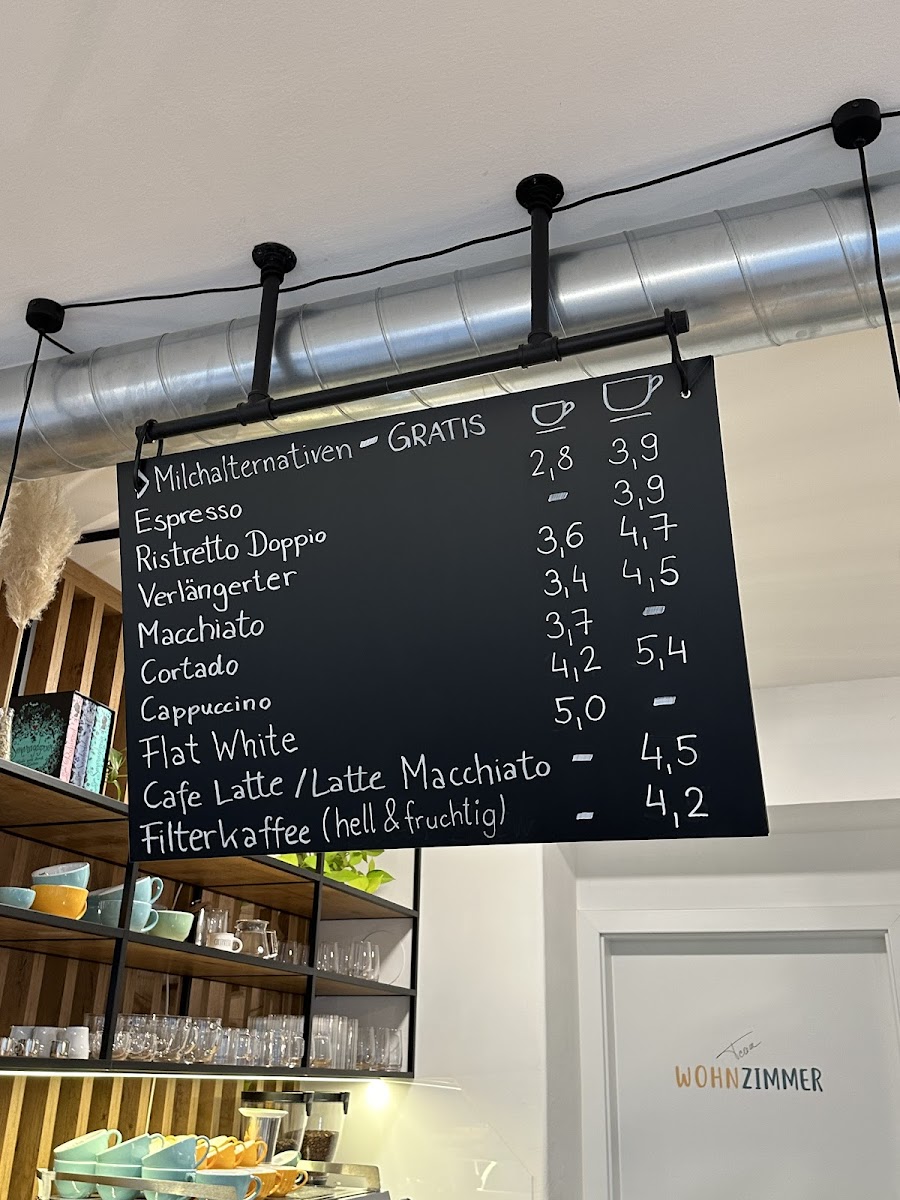 > Milchalternativen - GRATIS
Espresso 2,8 3,9
Ristretto Doppio - 3,9
Verlängerter 3,6 4,7
Macchiato 3,4 4,5
Cortado 3,7 -
Cappuccino 4,2 5,4
Flat White 5,0 -
Cafe Latte / Latte Macchiato - 4,5
Filterkaffee (hell & fruchtig) - 4,2
WOHNZIMMER